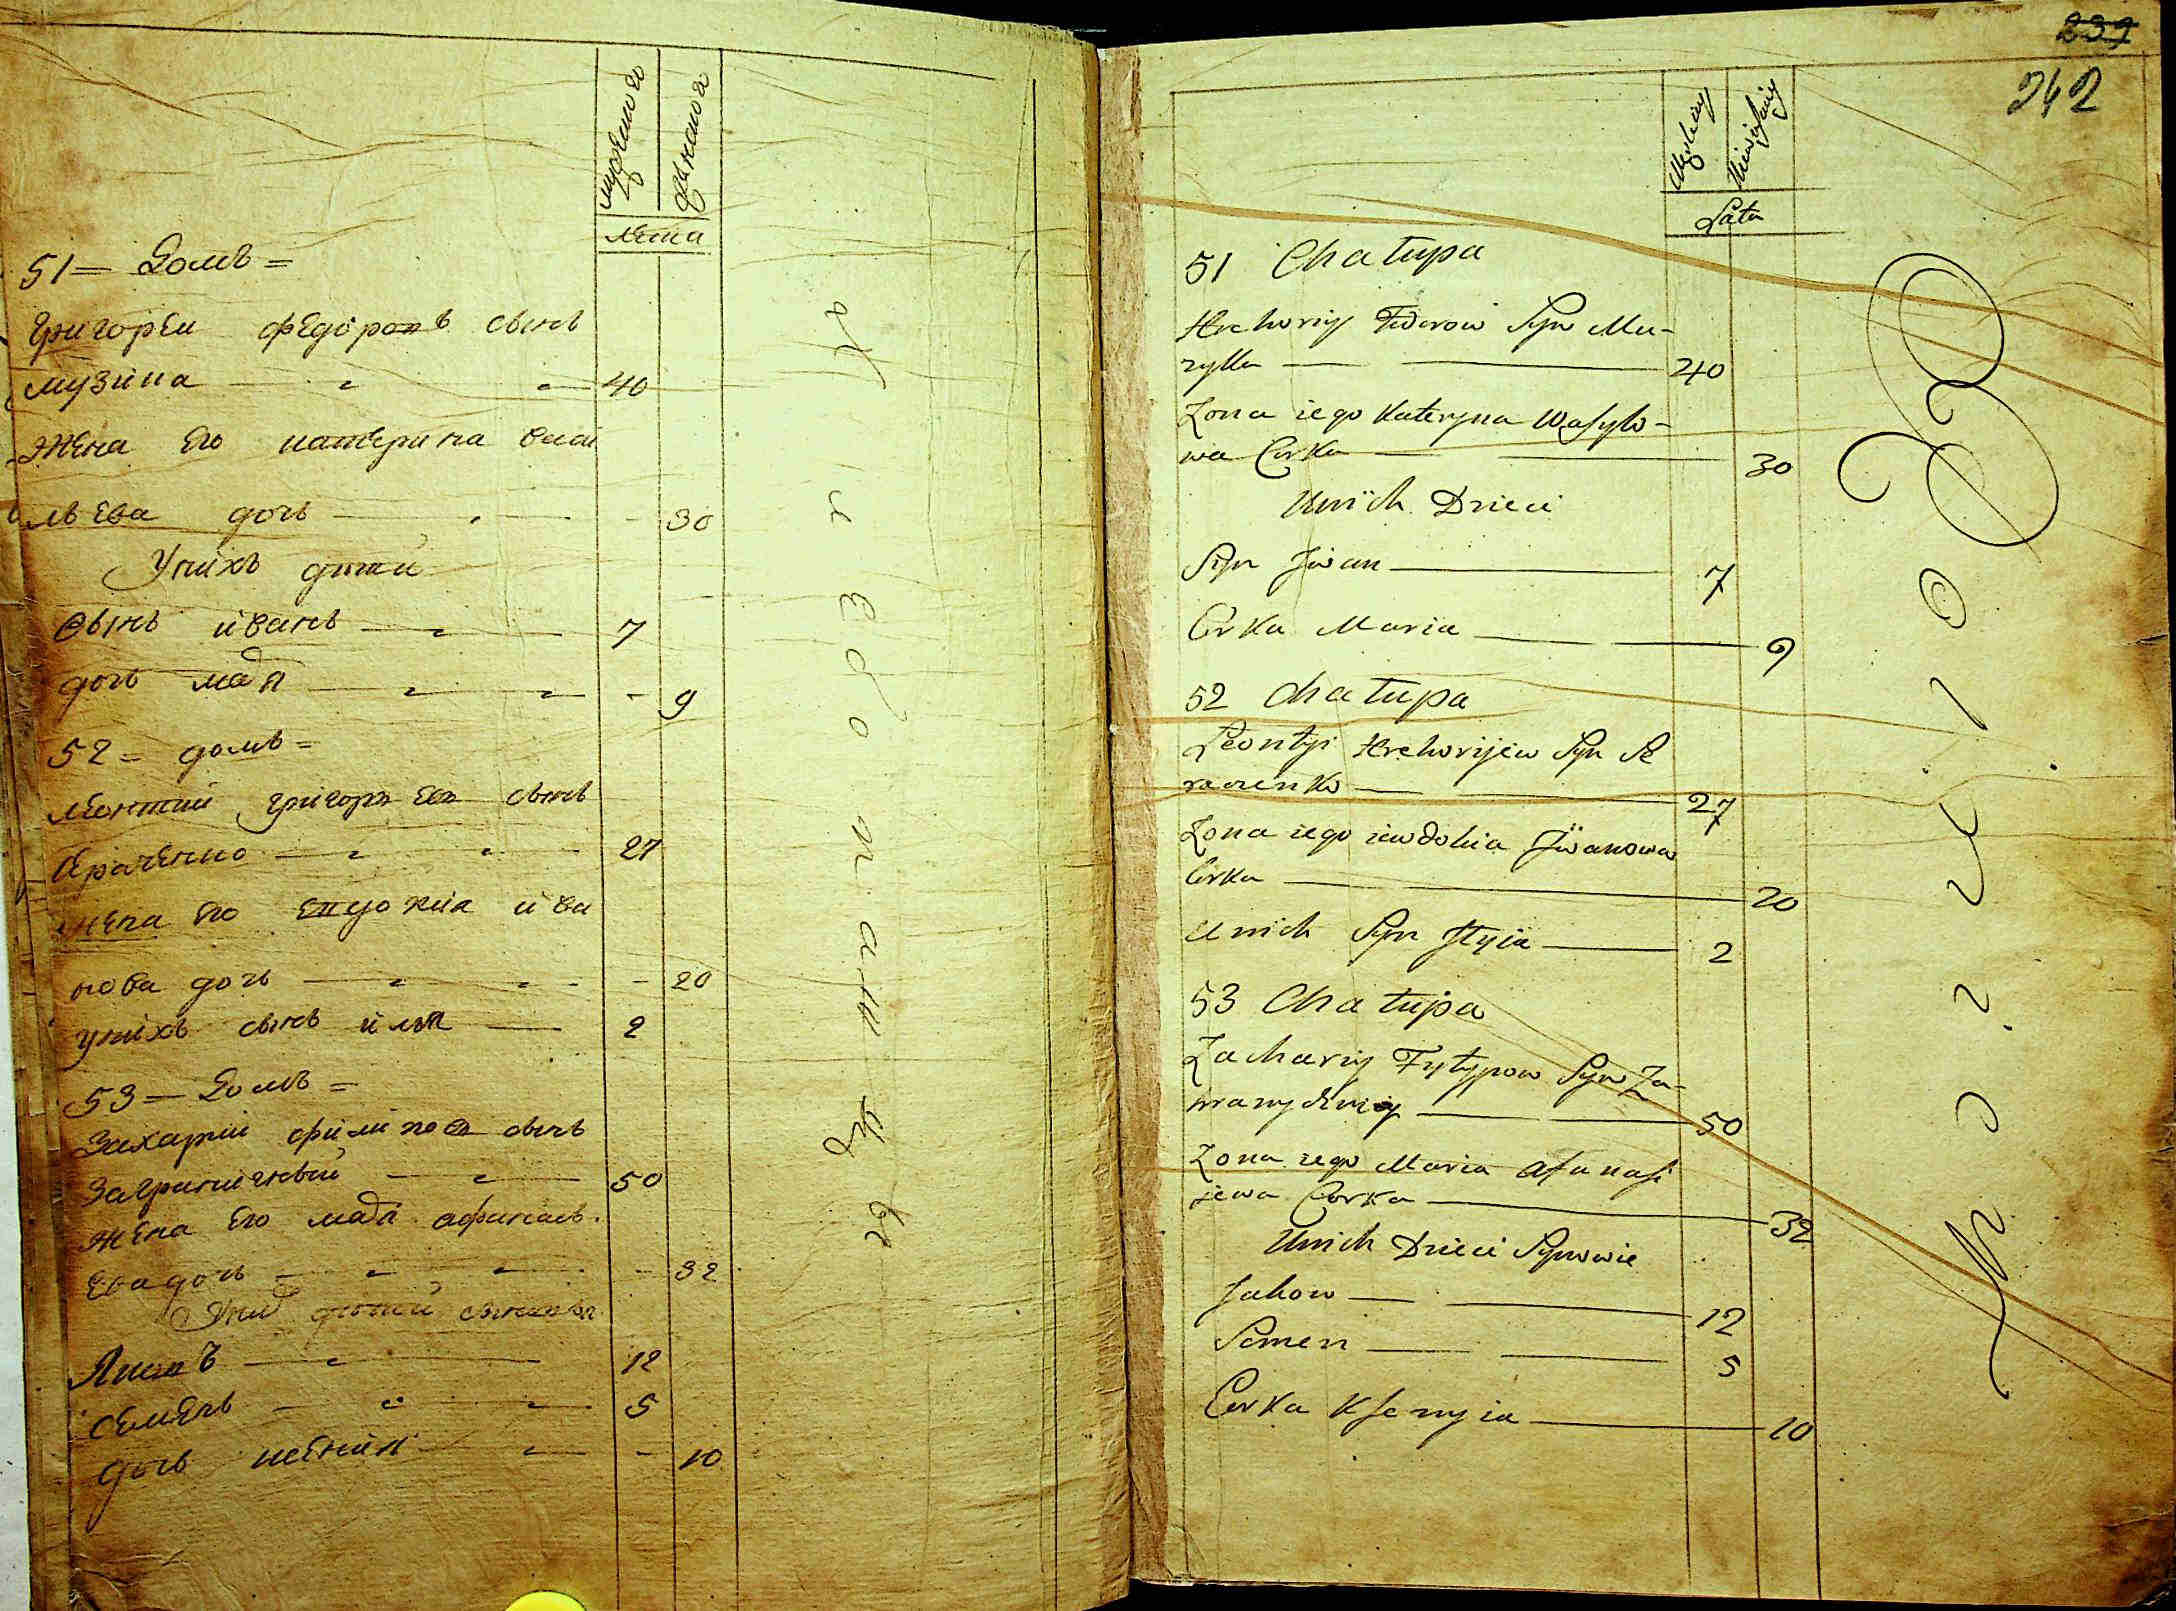 мужеска
женска
лета
51 = Домъ =
Григореи федоровъ сынъ
музика 40
жена Его катерина васи
льева дочь 30
Унихъ дети
Сынъ иванъ 7
дочь маря 9
52 = домъ =
леонтии григорьевъ сынъ
жена Его евдокия ива
нова дочь 20
унихъ сынъ илья 2
53 = Домъ =
Захарии филиповъ сынъ
Заграничный 50
жена Его маря афанась
ева дочь 32
Яковъ 12
семенъ 5
дочь ксения 10
237
242
Męskiey
Niewieściey
Lata
51 Chałupa
Hrehoriy Fedorow Syn Mu-
zyka 40
Żona iego Kateryna Wasylo-
wa Corka 30
Unich Dzieci
Syn Jwan 7
Corka Maria 9
52 Chałupa
Leontyi Hrehorijew Syn
27
Żona iego iewdokia Jwanowa
Corka 20
Unich Syn Jlyia 2
53 Chałupa
Zachariy Fylypow Syn Za-
hranyczniy 50
Żona iego Maria Afanasi
jewa Corka 32
Unich Dzieci Synowie
Jakow 12
Semen 5
Corka Ksenyia 10